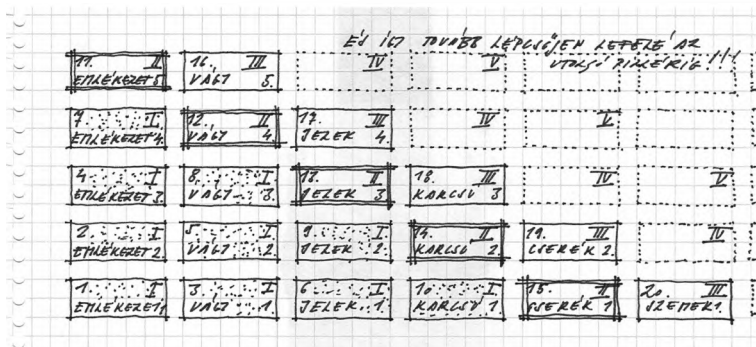 ÉS ÍGY TOVÁBB LÉPCSŐJEN LEFELÉ AZ
UTOLSÓ PIXLÉRIG!!!
11. II
EMLÉKEZET 5
16. III
VÁGY 5.
IV
V
7. I
EMLÉKEZET 4.
12. II
VÁGY 4
17. III
JELEK 4.
IV
V
4. I
EMLÉKEZET 3.
8. I
VÁGY 3
13. II
JELEK 3
18. III
KARCSÚ 3
IV
V
2. I
EMLÉKEZET 2.
5. I
VÁGY 2
9. I
JELEK 2.
14. II
KARCSÚ 2
19. III
CSERÉK 2.
IV
1. I
EMLÉKEZET 1.
3. I
VÁGY 1.
6. I
JELEK 1.
10. I
KARCSÚ 1.
15. II
CSERÉK 1
20. III
SZEMEK 1.